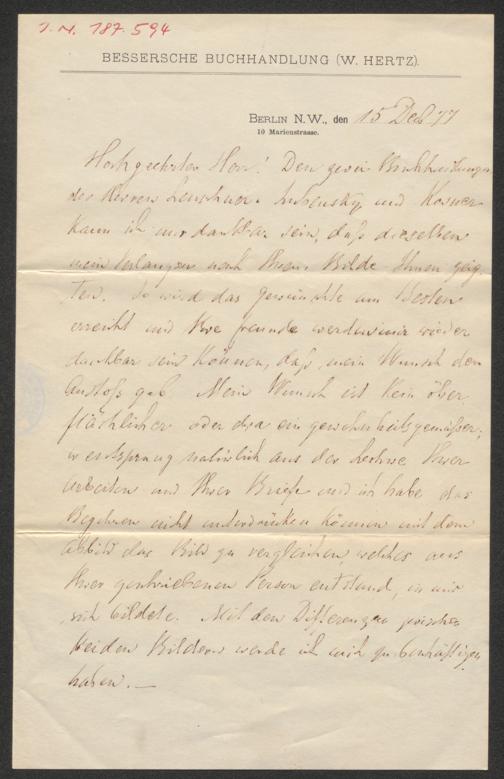 J. N. 187.594
BESSERSCHE BUCHHANDLUNG (W. HERTZ).
BERLIN N.W., den 15 Dec 77
10 Marienstrasse.
Hochgeehrter Herr! Den zwei
der Herren Leuschner. Lubensky und
kann ich nur dankbar sein, daß dieselben
mein Verlangen nach Ihrem Bilde Ihnen zeig-
ten. So wird das Gewünschte am Besten
erreicht und Ihre Freunde werden mir wieder
dankbar sein können, daß mein Wunsch den
Anstoß gab. Mein Wunsch ist kein ober-
flächlicher oder ein gewohnheitsgemäßer;
er entsprang natürlich aus der Lectüre Ihrer
Arbeiten und Ihrer Briefe und ich habe das
Begehren nicht unterdrücken können mit dem
Abbild das Bild zu vergleichen, welches aus
Ihrer geschriebenen Person entstand, in mir
sich bildete. Mit den Differenzen zwischen
beiden Bildern werde ich mich zu beschäftigen
haben. —